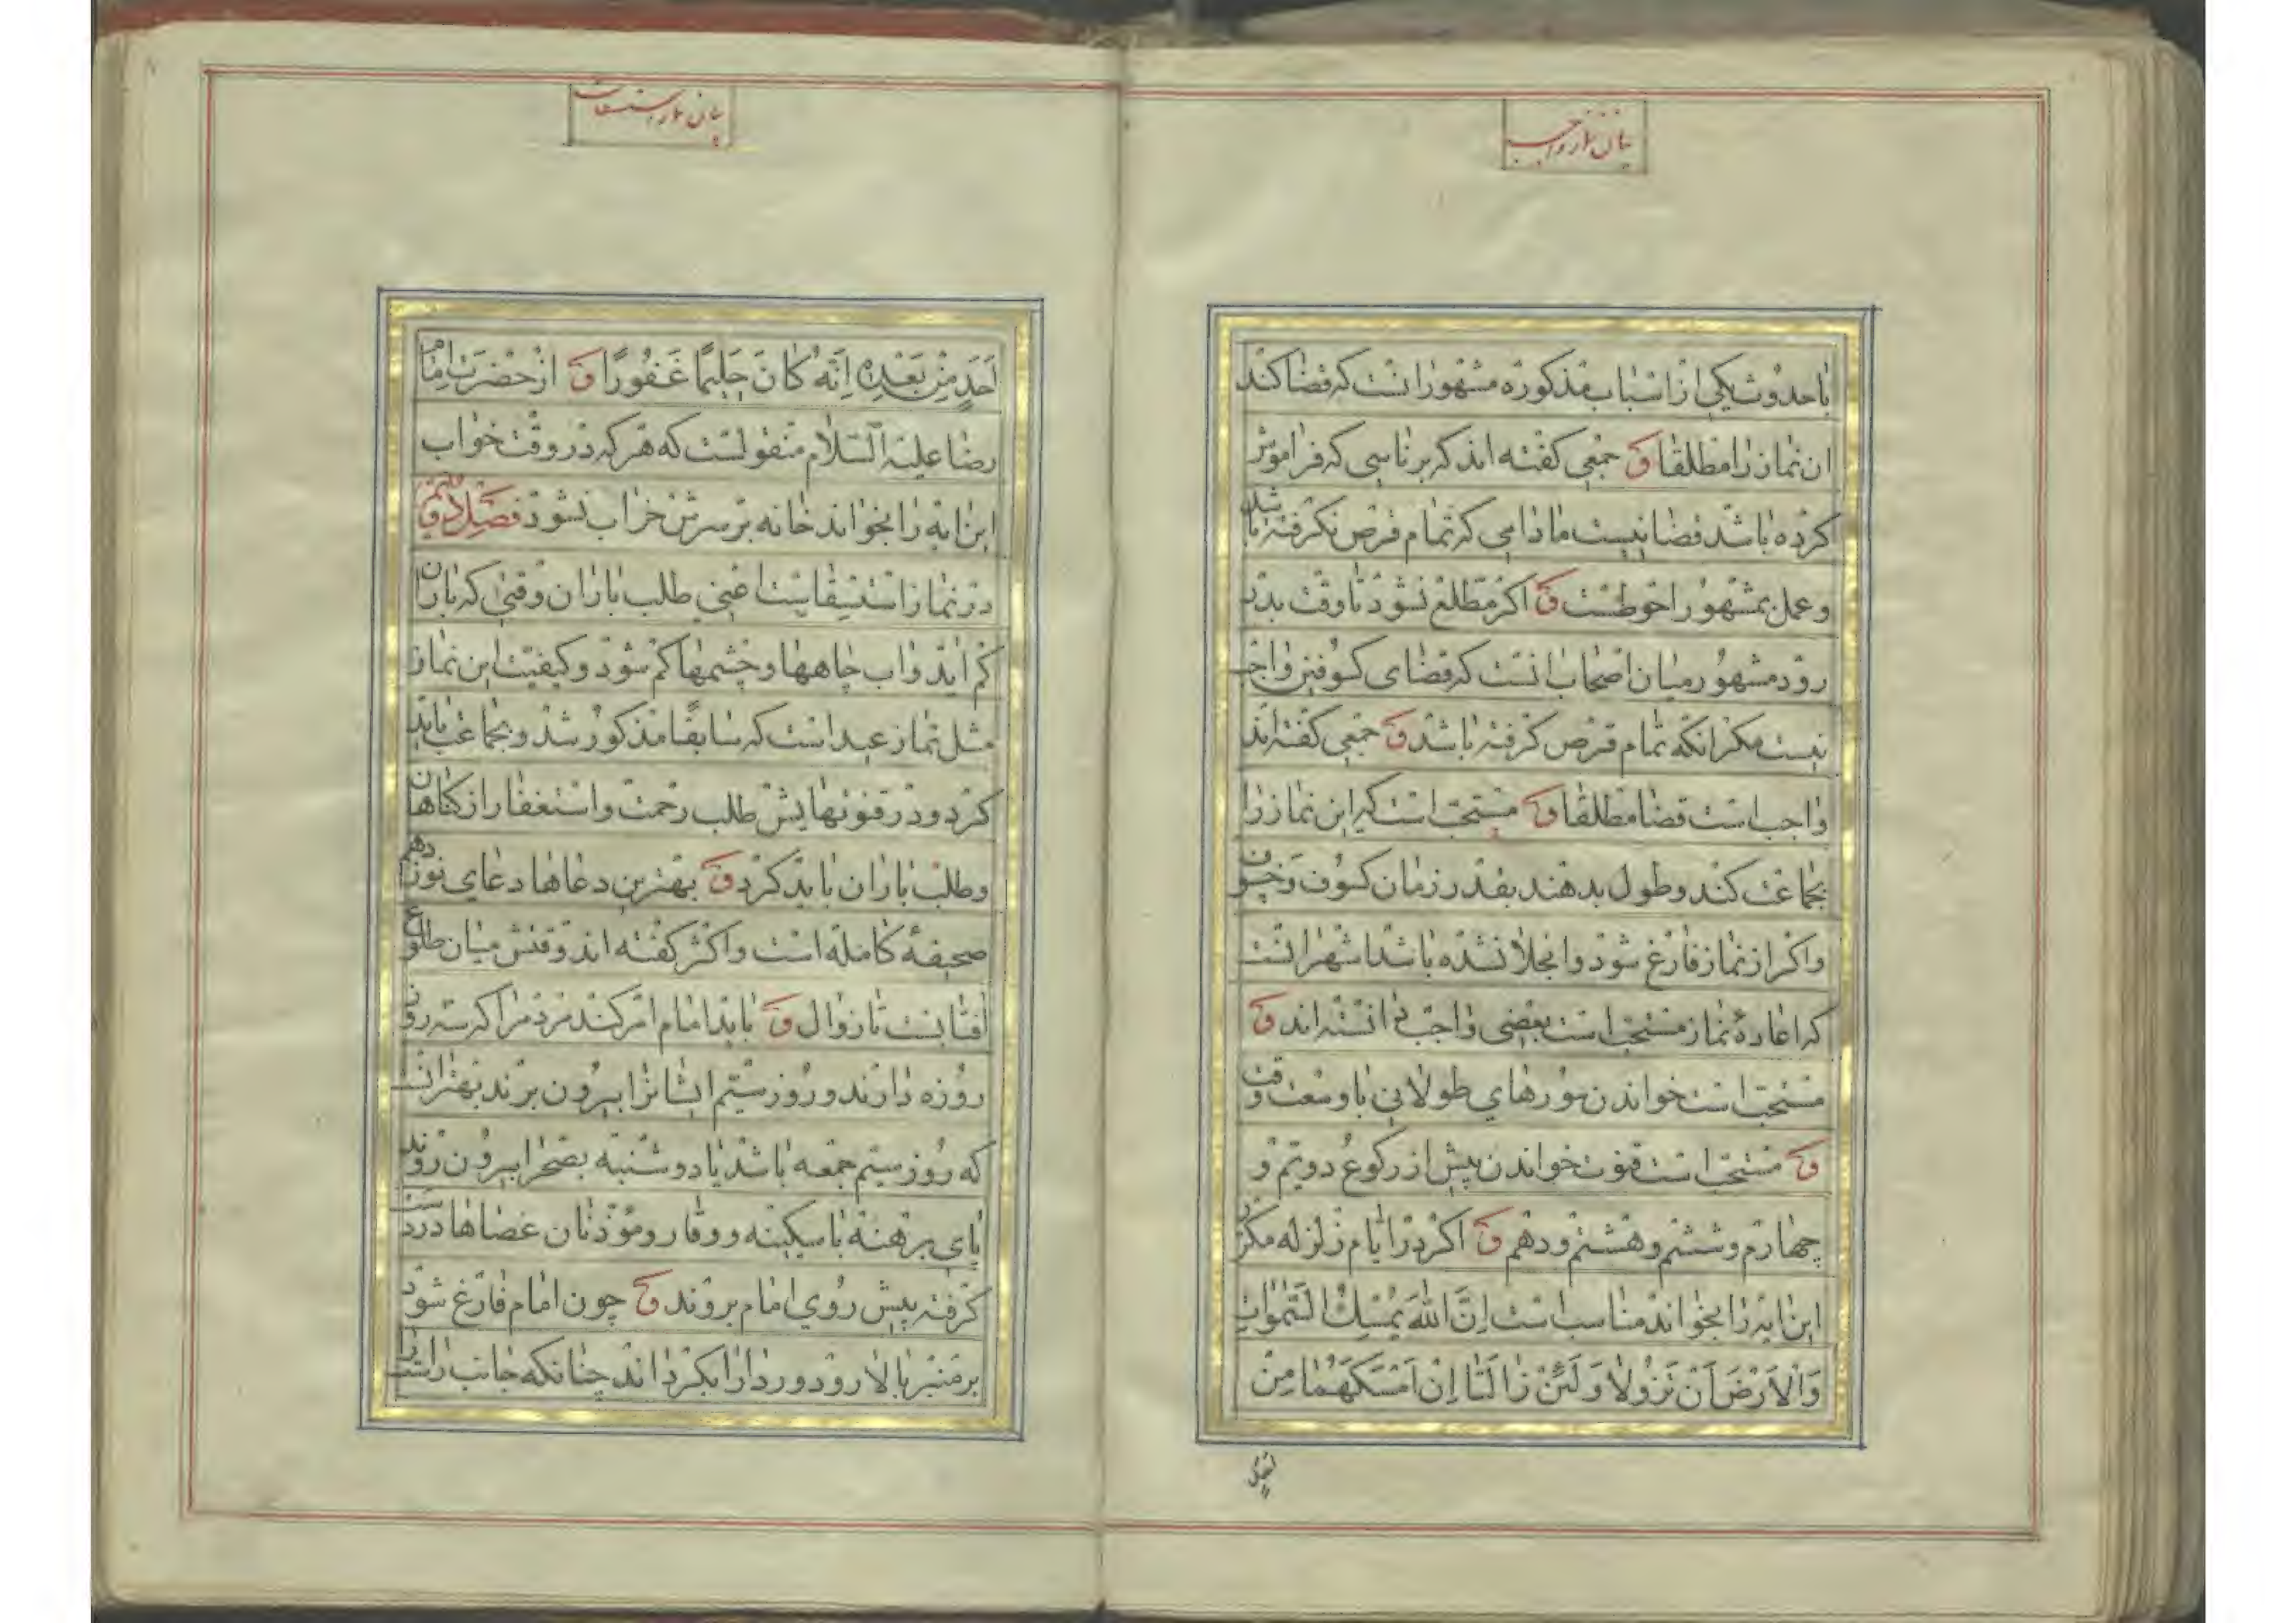 بیان نماز واجب
با حدوث یکی از اسباب مذکوره مشهور انست که قضا کند
ان نماز را مطلقا ق جمعی کفته اند که بر ناسی که فراموش
کرده باشد قضا نیست مادامی که تمام قرص نکرفته باشد
و عمل بمشهور احوطست ق اکر مطلع نشود تا وقت بدر
رود مشهور میان اصحاب انست که قضای کسوفین واجب
نیست مکر انکه تمام قرص کرفته باشد ق جمعی کفته اند
واجب است قضا مطلقا ق مستحب است که این نماز را
بجماعت کنند و طول بدهند بقدر زمان کسوف و خسوف
و اکر از نماز فارغ شود و انجلا نشده باشد اشهر انست
که اعادهٔ نماز مستحب است بعضی واجب دانسته اند ق
مستحب است خواندن سورهای طولانی با وسعت وقت
ق مستحب است قنوت خواندن پیش از رکوع دویم و
چهارم و ششم و هشتم و دهم ق اکر در ایام زلزله مکرر
این ایه را بخواند مناسب است اِنَّ اللهَ یُمْسِكُ السَّمٰوٰاتِ
وَالْاَرْضَ اَنْ تَزُولاٰ وَ لَئِنْ زٰالَتٰا اِنْ اَمْسَکَهُمٰا مِنْ
بیان نماز استسقاء
اَحَدٍ مِنْ بَعْدِهِ اِنَّهُ کٰانَ حَلِیمًا غَفُورًا ق از حضرت امام
رضا علیه السلام منقولست که هر که در وقت خواب
این ایه را بخواند خانه بر سرش خراب نشود فصل دویم
در نماز استسقاست اعنی طلب باران وقتی که باران
کم اید و اب چاهها و چشمها کم شود و کیفیت این نماز
مثل نماز عید است که سابقًا مذکور شد و بجماعت باید
کرد و در قنوتهایش طلب رحمت و استغفار از کناهان
و طلب باران باید کرد ق بهترین دعاها دعای نوزدهم
صحیفهٔ کامله است و اکثر کفته اند وقتش میان طلوع
افتابست تا زوال ق باید امام امر کند مردم را که سه روز
روزه دارند و روز سیّم ایشانرا بیرون برند بهتر انست
که روز سیّم جمعه باشد یا دوشنبه بصحرا بیرون روند
پای برهنه با سکینه و وقار و مؤذنان عصاها در دست
کرفته پیش روی امام بروند ق چون امام فارغ شود
بر منبر بالا رود و ردا را بکرداند چنانکه جانب راست را